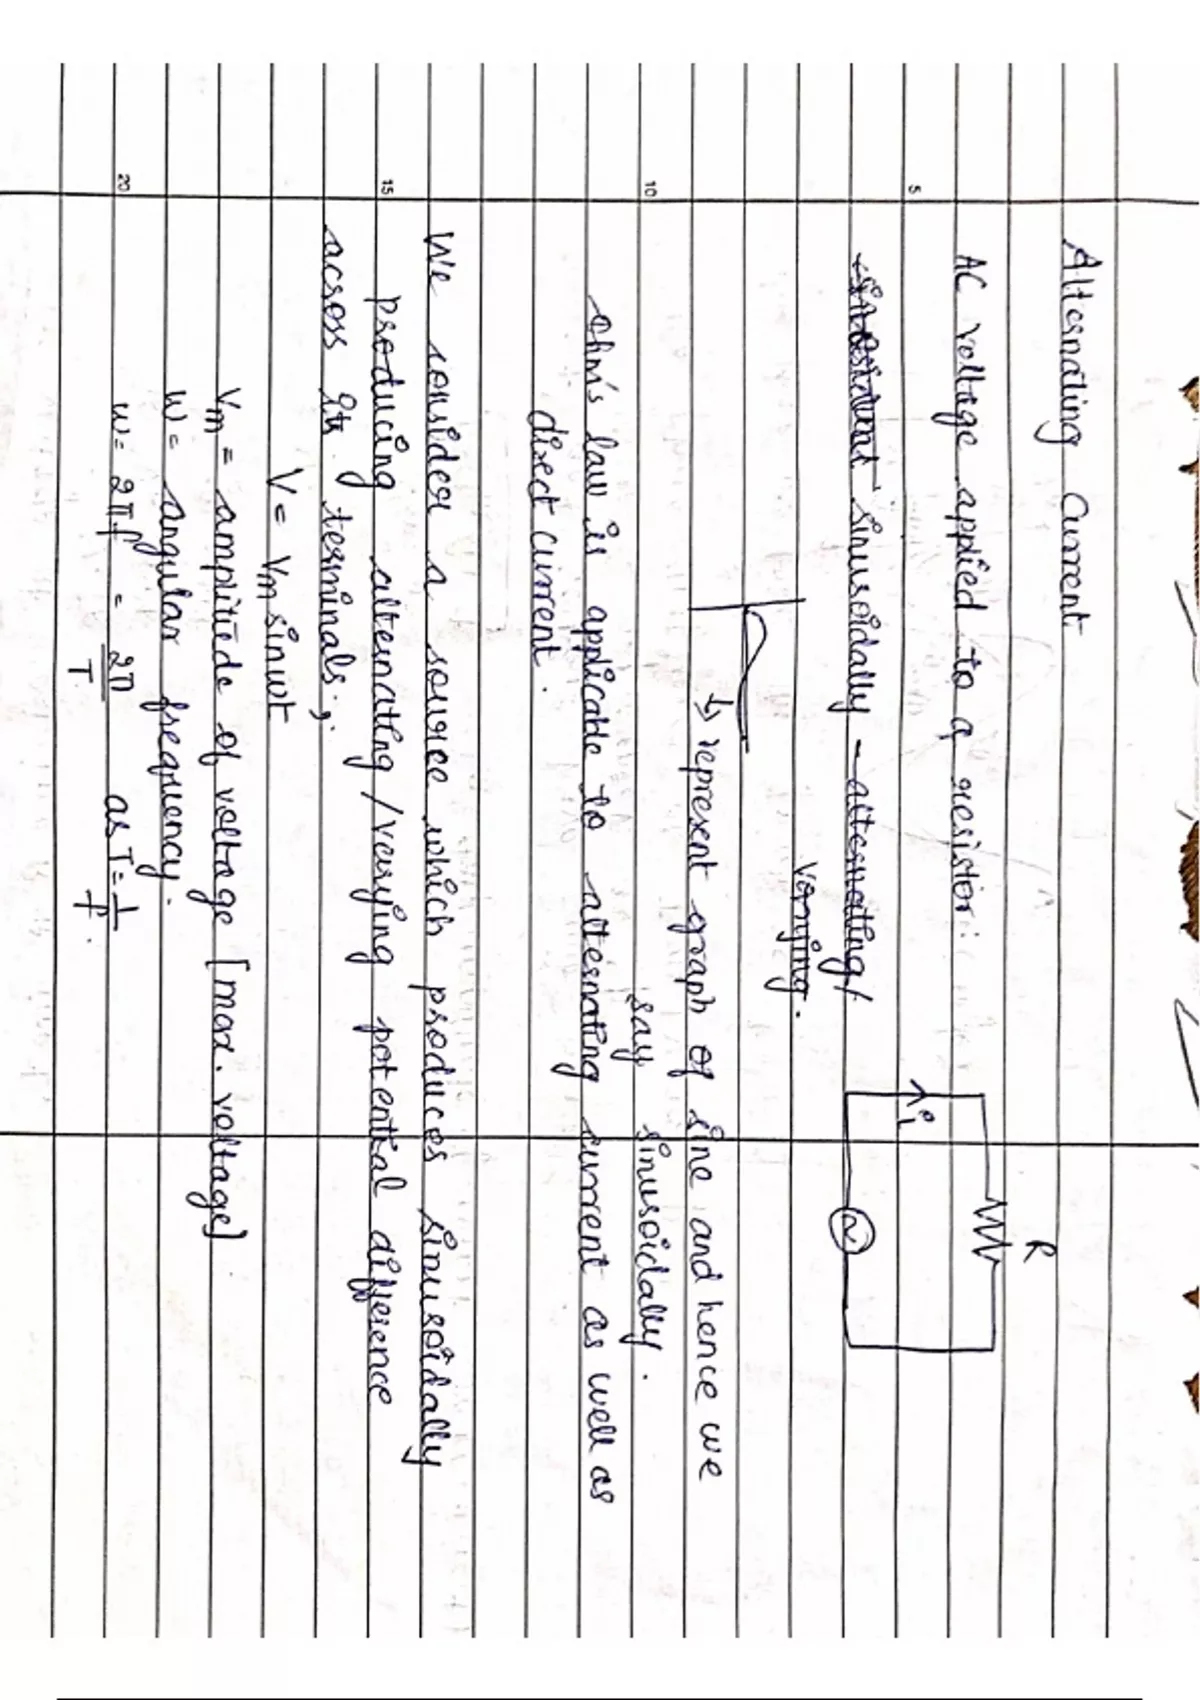 Alternating Current
AC voltage applied to a resistor:
R
i
~
sinusidual sinusoidally - alternating/
varying.
↳ represent graph of sine and hence we
say sinusoidally.
5
10
ohm's law is applicable to alternating current as well as
direct current.
We consider a source which produces sinusoidally
15
producing alternating/varying potential difference
across its terminals.,
V = Vm sinwt
Vm = amplitude of voltage [max. voltage]
w = angular frequency.
20
w = 2πf = 2π/T as T = 1/f.